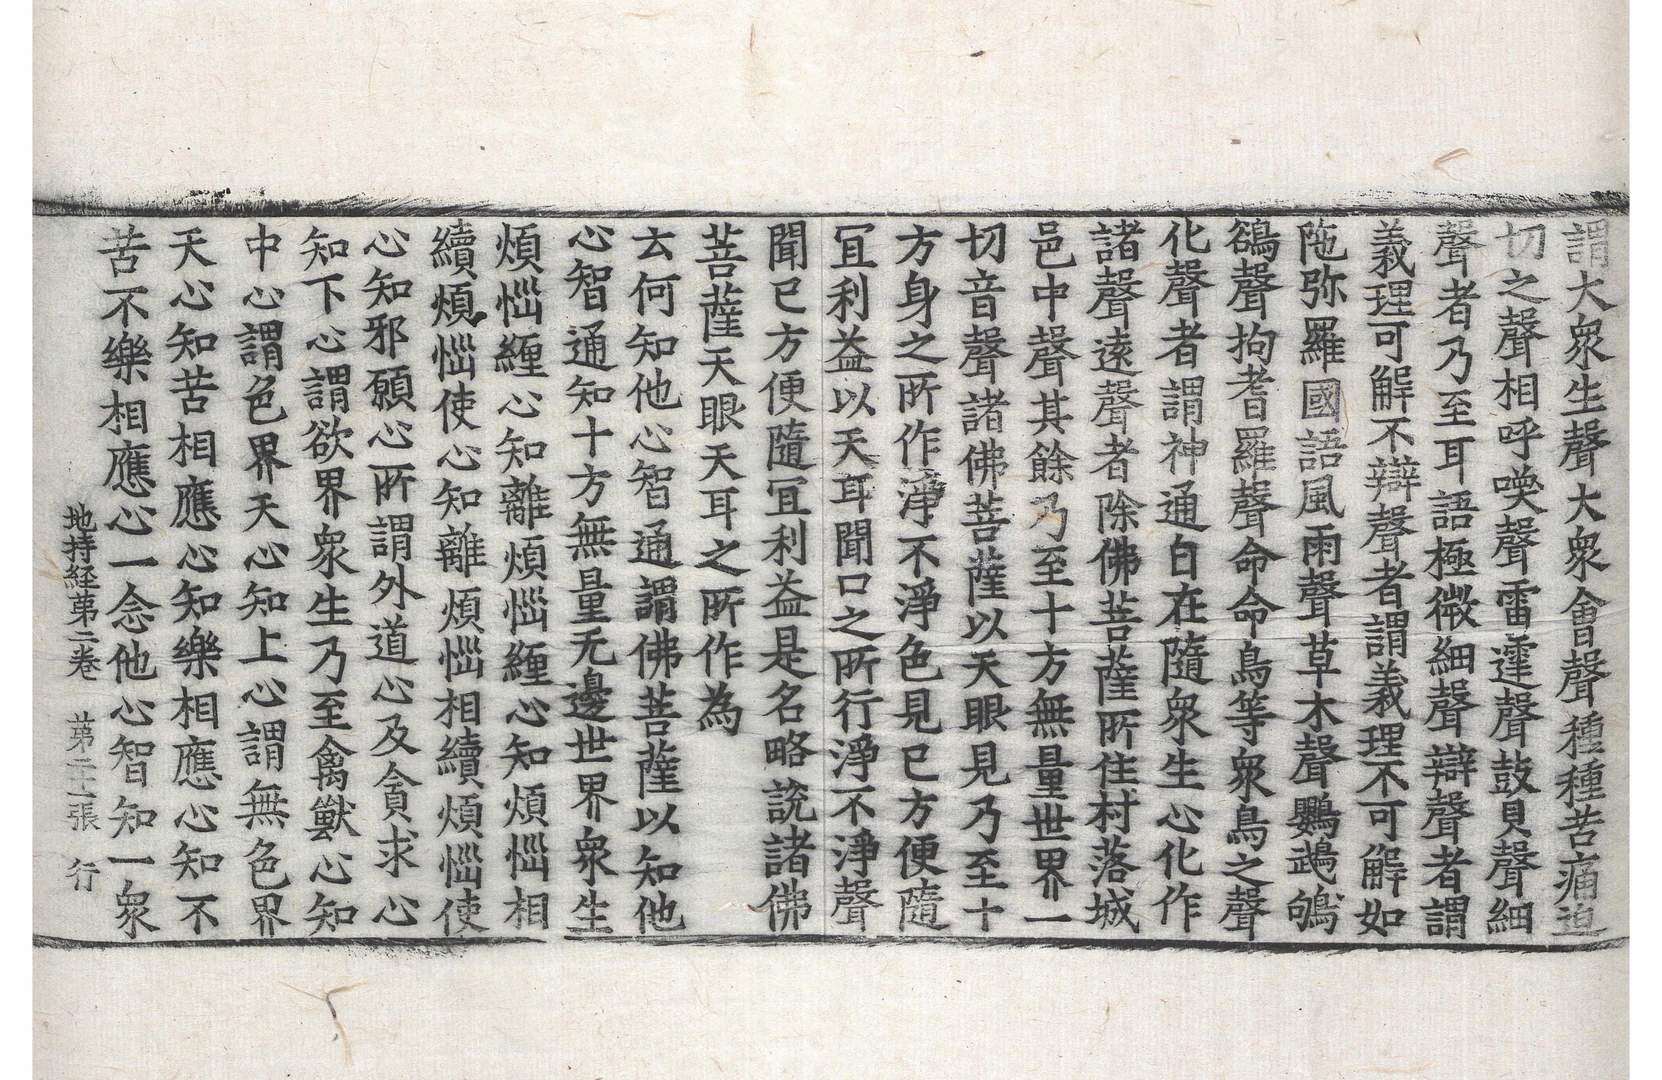 謂大衆生聲大衆會聲種種苦痛迫
切之聲相呼喚聲雷霆聲鼓貝聲細
聲者乃至耳語極微細聲辯聲者謂
義理可解不辯聲者謂義理不可解如
陁弥羅國語風雨聲草木聲鸚鵡鴝
鵒聲拘耆羅聲命命鳥等衆鳥之聲
化聲者謂神通自在隨衆生心化作
諸聲遠聲者除佛菩薩所住村落城
邑中聲其餘乃至十方無量世界一
切音聲諸佛菩薩以天眼見乃至十
方身之所作淨不淨色見已方便隨
冝利益以天耳聞口之所行淨不淨聲
聞已方便隨冝利益是名略說諸佛
菩薩天眼天耳之所作為
云何知他心智通謂佛菩薩以知他
心智通知十方無量无邊世界衆生
煩惱纏心知離煩惱纏心知煩惱相
續煩惱使心知離煩惱相續煩惱使
心知邪願心所謂外道心及貪求心
知下心謂欲界衆生乃至禽獸心知
中心謂色界天心知上心謂無色界
天心知苦相應心知樂相應心知不
苦不樂相應心一念他心智知一衆
地持経苐二卷 苐二十張 行